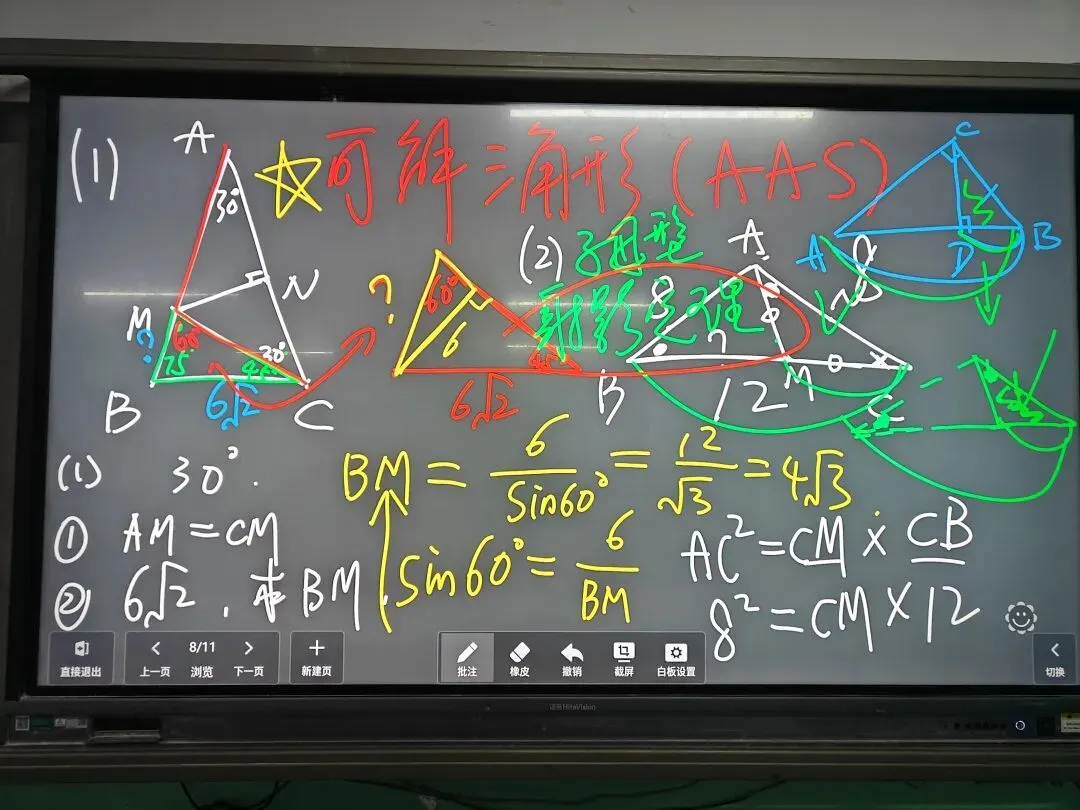 (1)
☆可解三角形(AAS)
A
30°
N
M
60°
?
75
30°
45°
B
6√2
C
?
60°
6
45°
6√2
(2)
子母型
射影定理
A
8
8
B
M
C
12
C
3
A
D
B
(1) 30°.
① AM=CM
② 6√2.求BM
BM=6/sin60°=12/√3=4√3
sin60°=6/BM
AC²=CM×CB
8²=CM×12
直接退出
上一页
8/11
浏览
下一页
新建页
批注
橡皮
撤销
截屏
白板设置
切换
HiteVision